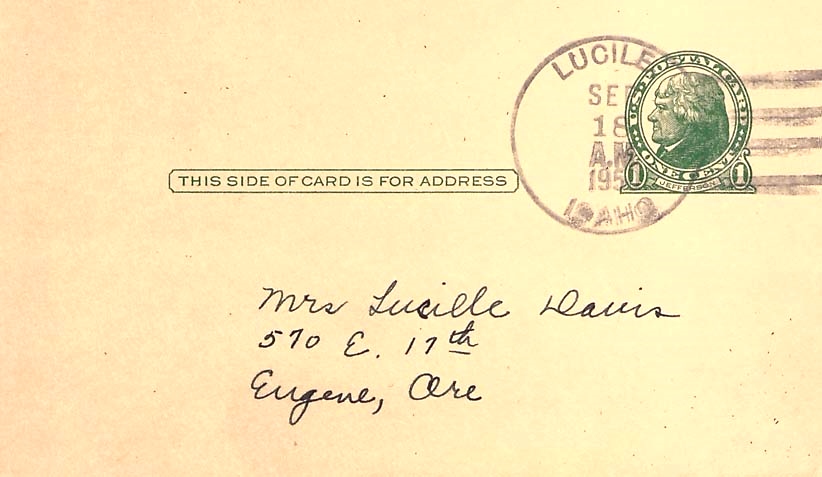 LUCILE
SEP
18
A.M.
195
IDAHO
U.S. POSTAL CARD
ONE CENT
1 JEFFERSON 1
THIS SIDE OF CARD IS FOR ADDRESS
Mrs Lucille Davis
570 E. 17th
Eugene, Ore